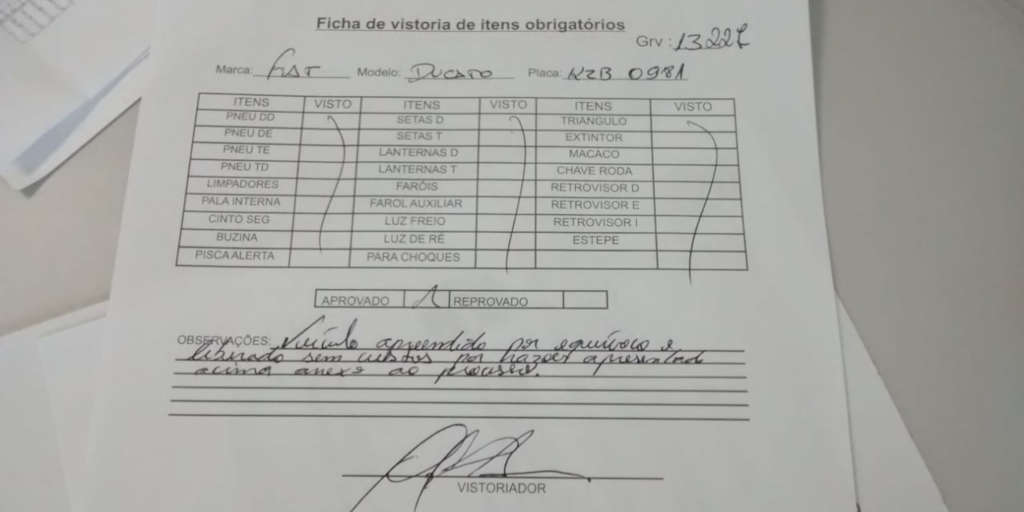 Ficha de vistoria de itens obrigatórios
Grv: 13227
Marca: FIAT Modelo: DUCATO Placa: KZB 0981
ITENS VISTO ITENS VISTO ITENS VISTO
PNEU DD SETAS D TRIANGULO
PNEU DE SETAS T EXTINTOR
PNEU TE LANTERNAS D MACACO
PNEU TD LANTERNAS T CHAVE RODA
LIMPADORES FARÓIS RETROVISOR D
PALA INTERNA FAROL AUXILIAR RETROVISOR E
CINTO SEG LUZ FREIO RETROVISOR I
BUZINA LUZ DE RÉ ESTEPE
PISCA ALERTA PARA CHOQUES
APROVADO REPROVADO
OBSERVAÇÕES: Veículo apreendido por equívoco e
liberado sem custos por razões apresentado
acima anexo ao processo.
VISTORIADOR